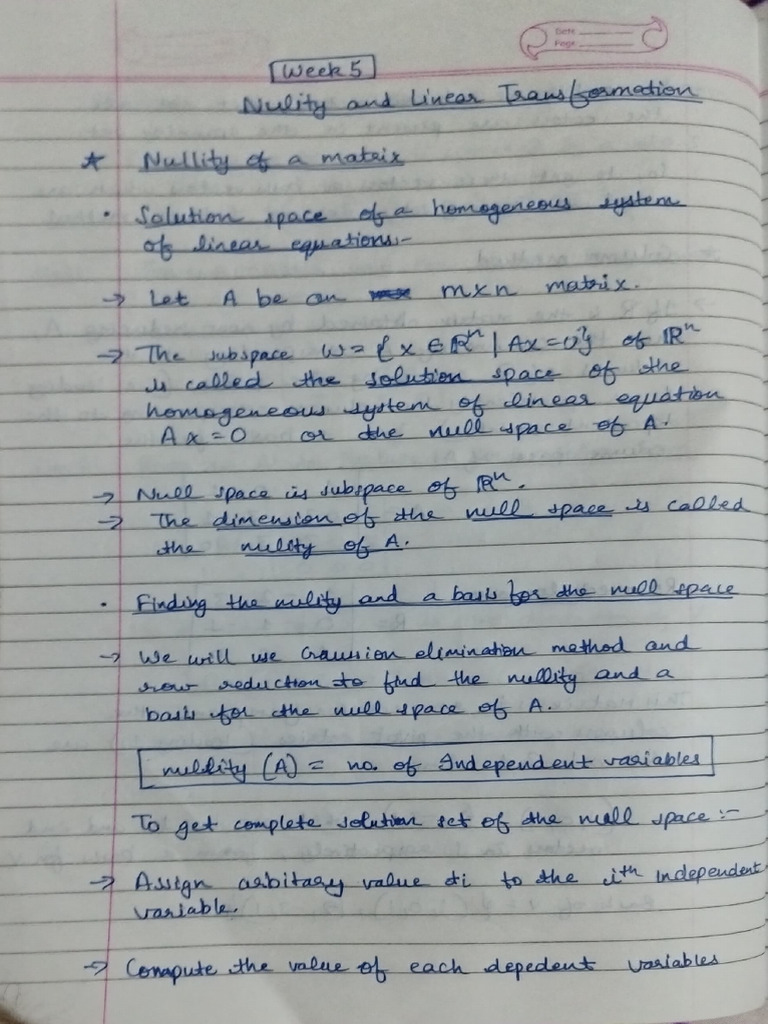 Date
Page
Week 5
Nulity and Linear Transformation
* Nullity of a matrix
• Solution space of a homogeneous system
of linear equations:-
→ Let A be an m×n matrix.
→ The subspace W = {x ∈ ℝⁿ | Ax=0} of ℝⁿ
is called the solution space of the
homogeneous system of linear equation
Ax=0 or the null space of A.
→ Null space is subspace of ℝⁿ.
→ The dimension of the null space is called
the nullity of A.
• Finding the nulity and a basis for the null space
→ We will use Gaussion elimination method and
row reduction to find the nullity and a
basis for the null space of A.
nullity (A) = no. of Independent variables
To get complete solution set of the null space :-
→ Assign arbitary value ti to the ith independent
variable.
→ Compute the value of each depedent variables